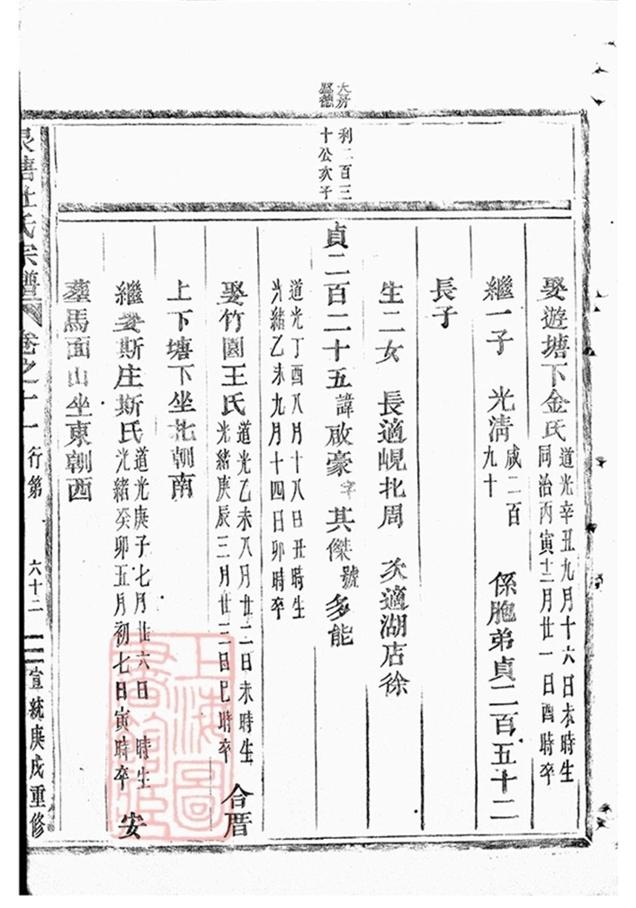 大房
利二百三
十公次子
娶遊塘下金氏
道光辛丑九月十六日未時生
同治丙寅十二月廿一日酉時卒
繼一子 光清
咸二百
九十
係胞弟貞二百五十二
長子
生二女 長適峴北周 次適湖店徐
貞二百二十五諱啟豪字其傑號多能
道光丁酉八月十八日丑時生
光緒乙未九月十四日卯時卒
娶竹園王氏
道光乙未八月廿二日未時生
光緒庚辰三月廿三日巳時卒
合厝
上下塘下坐北朝南
繼娶斯庄斯氏
道光庚子七月廿六日 時生
光緒癸卯五月初七日寅時卒
安
墓馬面山坐東朝西
杜氏宗譜
卷之十一
行第
六十二
宣統庚戌重修
上海圖書館藏